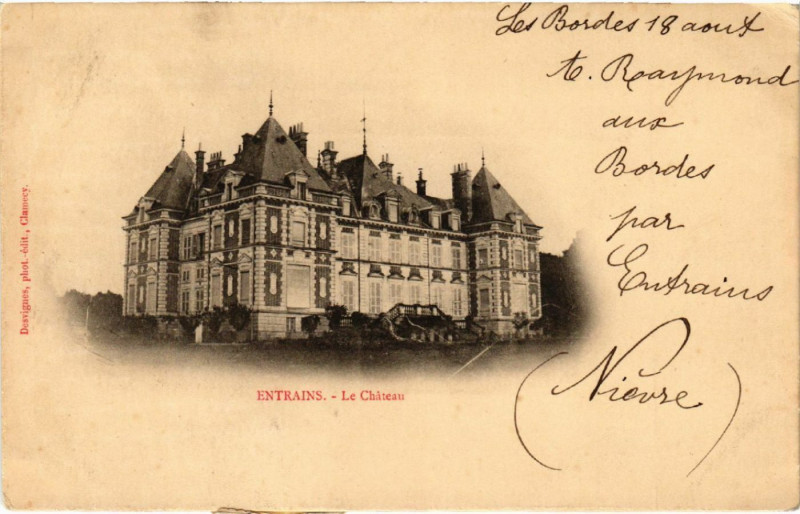 Les Bordes 18 aout
te. Raymond
aux
Bordes
par
Entrains
(Nièvre)
ENTRAINS. - Le Château
Desvignes, phot.-édit., Clamecy.